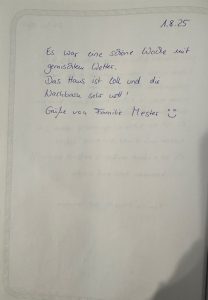 1.8.25
Es war eine schöne Woche mit
gemischtem Wetter.
Das Haus ist toll und die
Nachbarn sehr nett!
Grüße von Familie Mester ☺